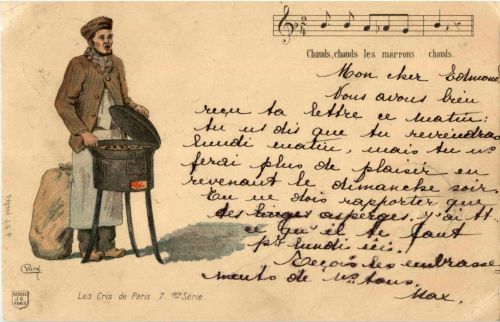 Chauds, chauds les marrons chauds.
Mon cher Edmond
Nous avons bien
reçu ta lettre ce matin:
tu ns dis que tu reviendras
lundi matin, mais tu ns
ferai plus de plaisir en
revenant le dimanche soir.
Tu ne dois rapporter que
des asperges. J'ai tt
ce qu'il te faut
pr lundi ici.
Reçois les embrasse-
ments de ns tous.
Max.
Déposé J. G. P.
Les Cris de Paris 7. Série.
JG
PARIS